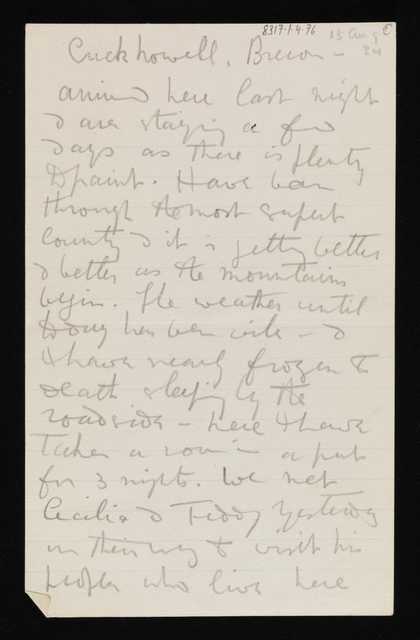 8317·1·4·76 13 Aug
24
Crickhowell, Brecon –
arrived here last night
& are staying a few
days as there is plenty
to paint. Have been
through the most superb
country & it is getting better
& better as the mountains
begin. The weather until
today has been vile – &
I have nearly frozen to
death sleeping by the
roadside – here I have
taken a room in a pub
for 3 nights. We met
Cecilia & Teddy yesterday
on their way to visit his
people who live here